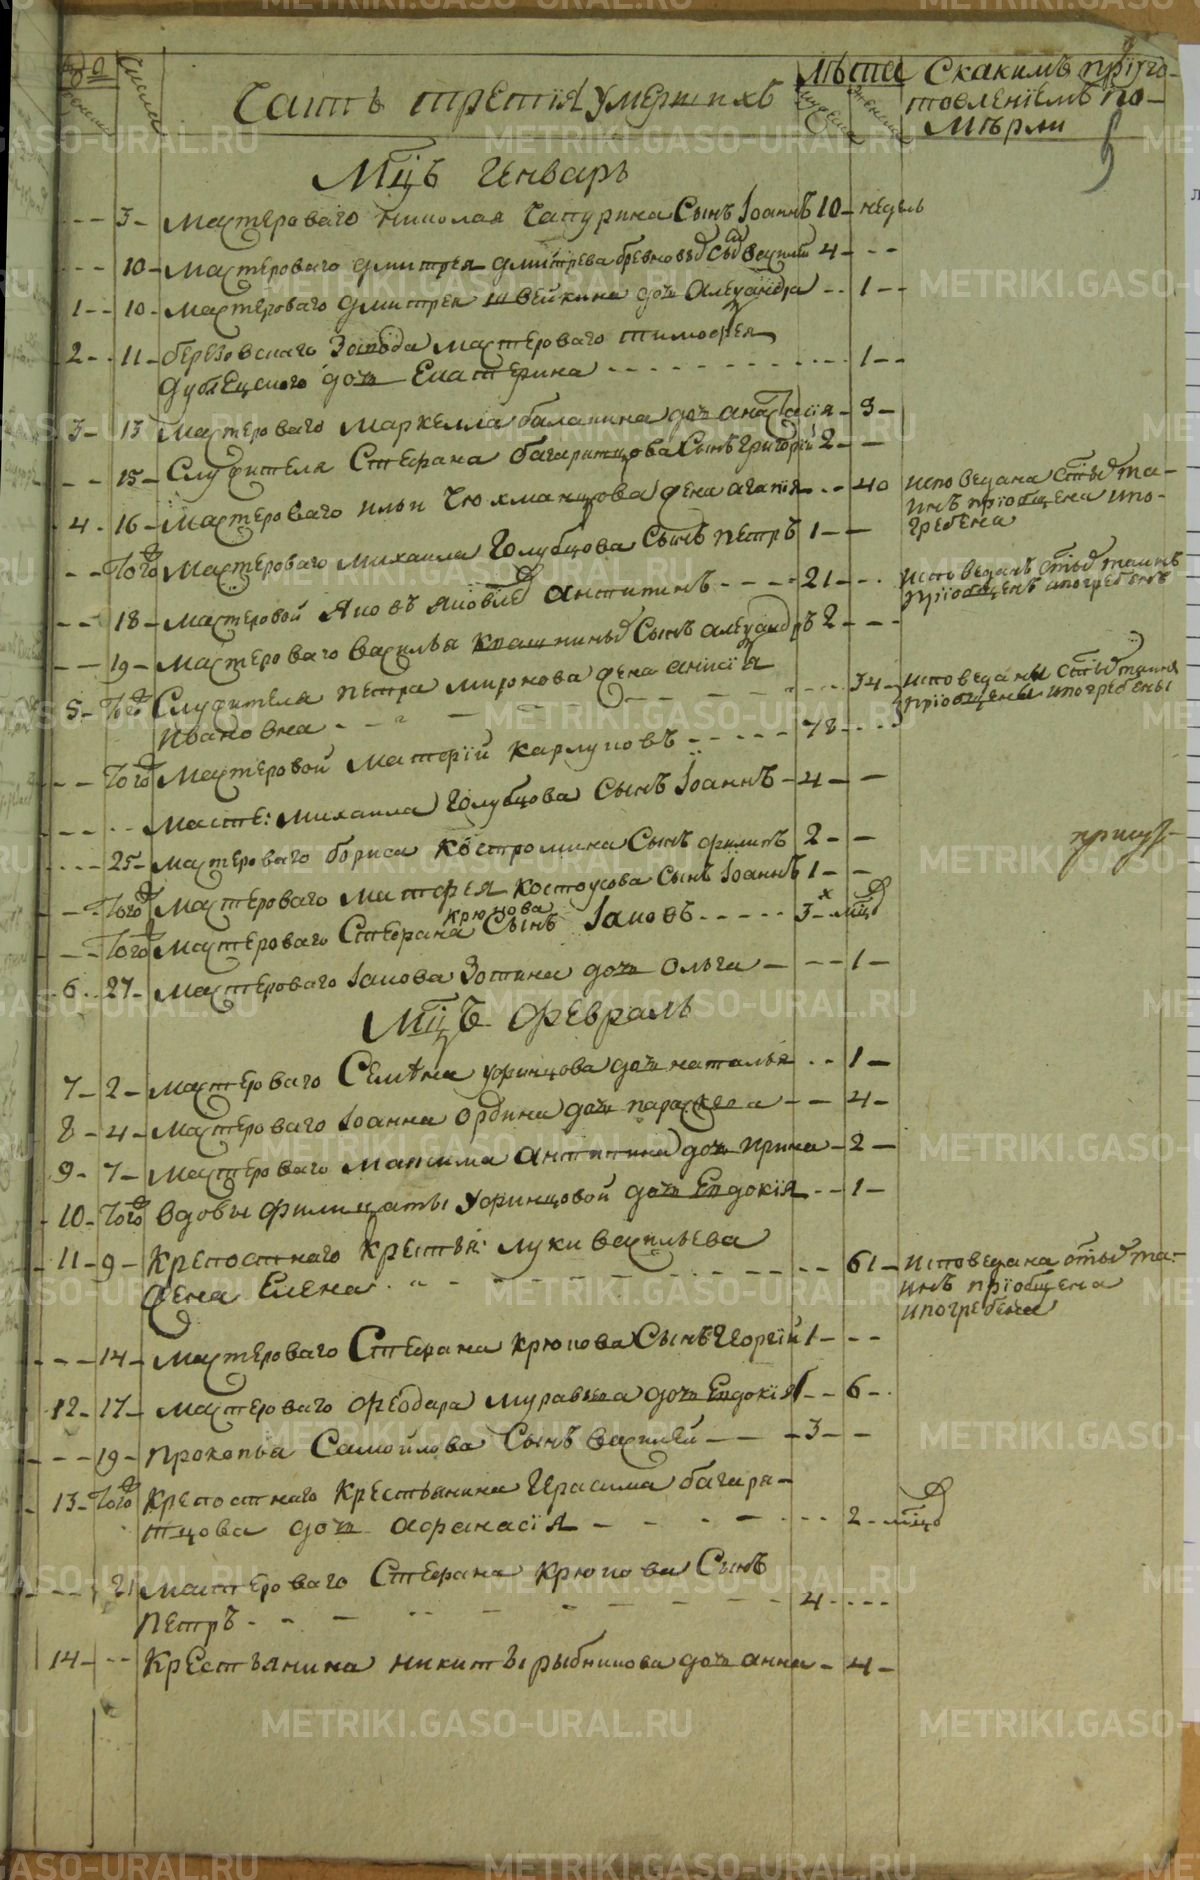 Часть третїя умершихъ
Лѣта
Скакимъ прїуго-
товленїемъ по-
мѣрли
Числа
Мц̃ъ Генварь
3 Мастероваго николая Чапурина Сынъ Іоаннъ 10 недель
10 Мастероваго дмитрея дмитрева Сынъ василий 4
1 10 Мастероваго дмитрея швейкина дочь Алеѯандра 1
2 11 березовскаго Завода мастероваго тимофея
дубецкого дочь Екатерина 1
3 13 Мастероваго Маркелла балакина дочь анастасїя 3
15 Служителя Стефана багарятцова Сынъ григорїй 2
4 16 Мастероваго ильи Чюхманцова жена агапїя 40 исповедана стых та-
инъ прїобщена ипо-
гребена
Того Мастероваго михаила Голубцова Сынъ петръ 1
18 мастеровой Яковъ яковлев Антипинъ 21 исповеданъ стых таинъ
прїобщенъ ипогребенъ
19 Мастероваго василья Сынъ алеѯандръ 2
5 Того Служителя петра миронова жена анисїя
ивановна 34 исповеданы стых таинъ
прїобщены ипогребены
Того Мастеровой матфїй карлуковъ 78
Масте: михаила Голубцова Сынъ Іоаннъ 4
25 мастероваго бориса костромина Сынъ филипъ 2
прицуз
Того Мастероваго матфея костоусова Сынъ Іоаннъ 1
крюкова
Того Мастероваго Стефана Сынъ Іаковъ 3 х мц̃ов
6 27 мастероваго Іакова Зотина дочь Ольга 1
Мц̃ъ февраль
7 2 мастероваго Семена уфинцова дочь наталья 1
8 4 мастероваго Іоанна ордина дочь параскева 4
9 7 мастероваго максима антипина дочь ирина 2
10 Того вдовы филицаты уфинцовой дочь Евдокїя 1
11 9 крепостнаго крестья: луки васильева
жена Елена 61 исповедана стых та-
инъ прїобщена
ипогребена
14 мастероваго Стефана крюкова Сынъ Георгїй 1
12 17 мастероваго феодара муравьева дочь Евдокїя 6
19 прокопья Самойлова Сынъ василей 3
13 Того крепостнаго крестьянина Герасима багаря-
тцова дочь афанасїя 2 мц̃ов
21 мастероваго Стефана крюкова Сынъ
петръ 4
14 крестьянина никиты рыбникова дочь анна 4